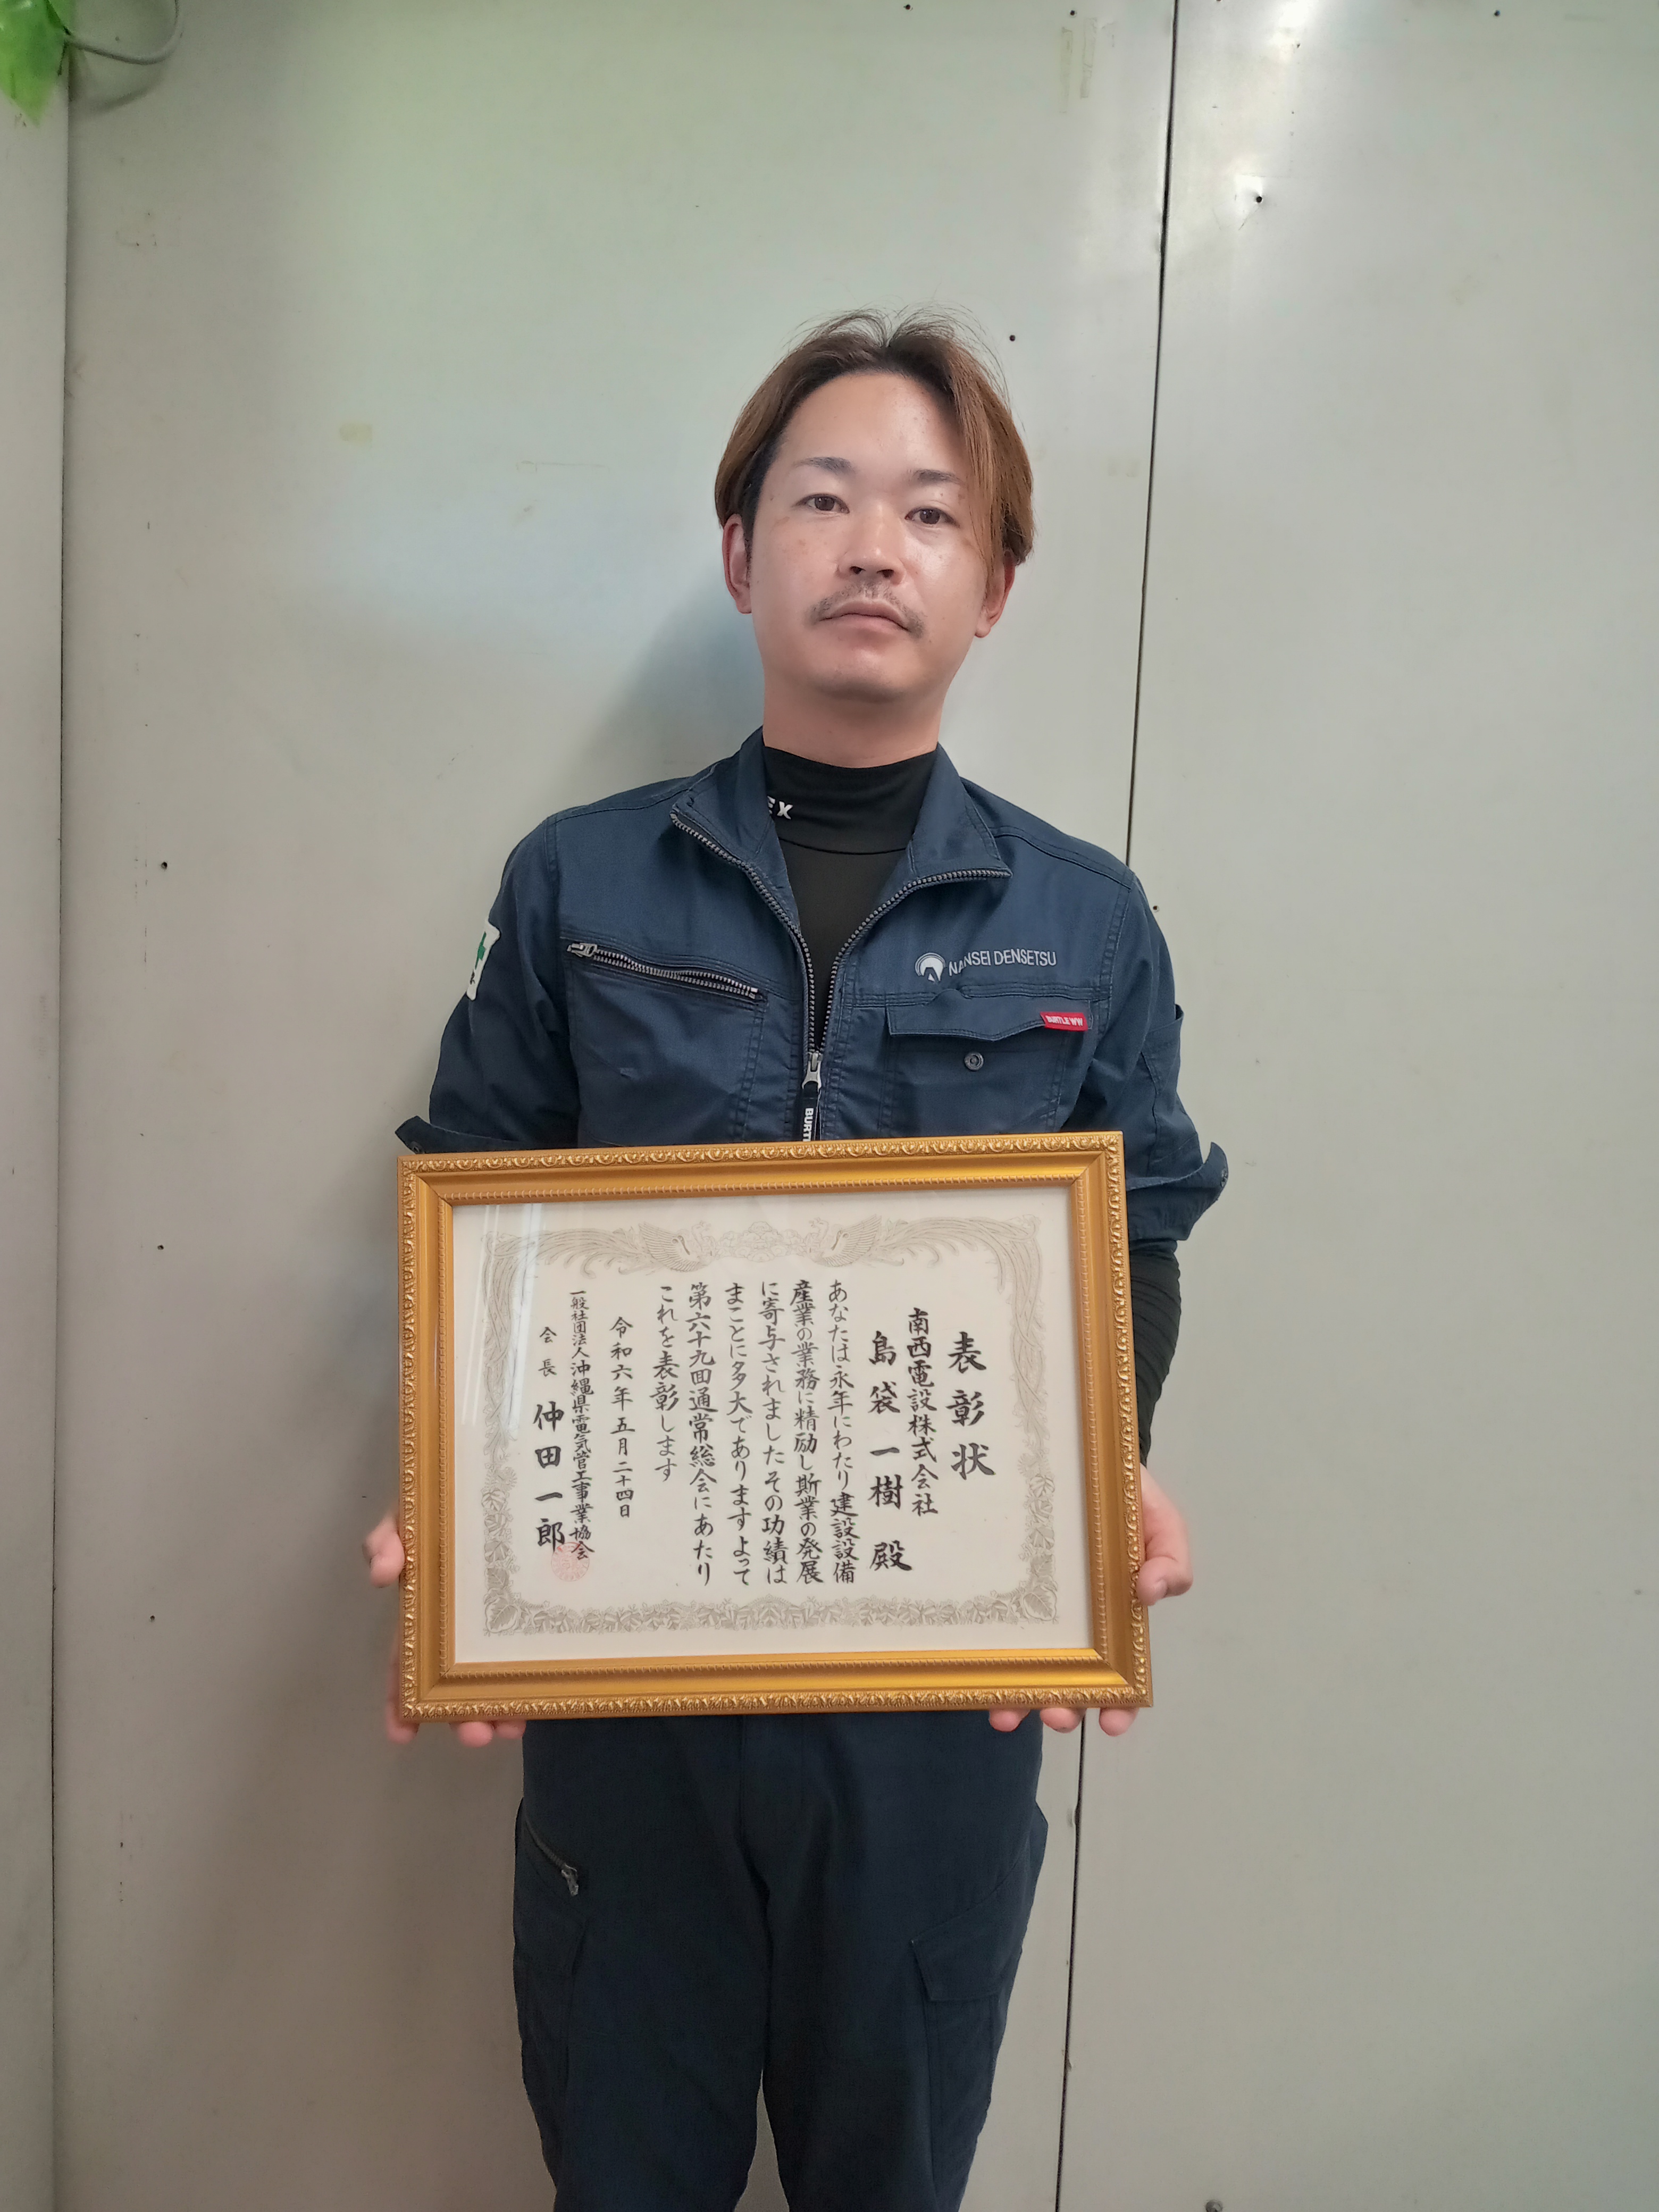 EX
NANSEI DENSETSU
BURTLE WW
BURT
表彰状
南西電設株式会社
島袋一樹 殿
あなたは永年にわたり建設設備
産業の業務に精励し斯業の発展
に寄与されましたその功績は
まことに多大でありますよって
第六十九回通常総会にあたり
これを表彰します
令和六年五月二十四日
一般社団法人沖縄県電気管工事業協会
会長 仲田一郎